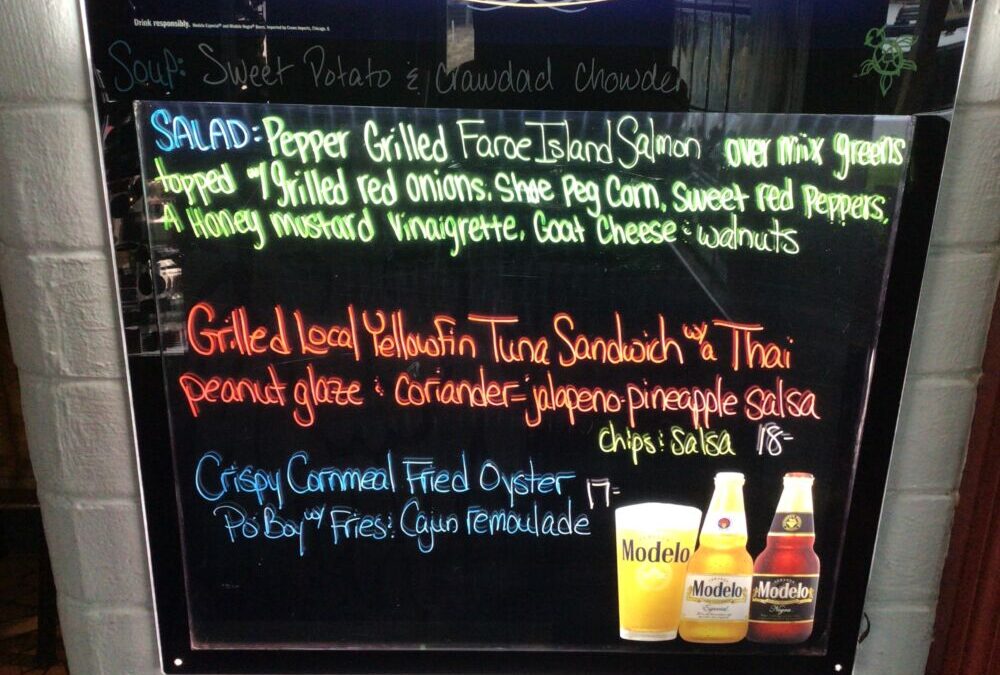 Drink responsibly. Modelo Especial® and Modelo Negra® Beers. Imported by Crown Imports, Chicago, IL
Soup: Sweet Potato & Crawdad Chowder
SALAD: Pepper Grilled Faroe Island Salmon over mix greens
topped w/ grilled red onions, Shoe Peg Corn, Sweet red Peppers,
A Honey mustard Vinaigrette, Goat Cheese & walnuts
Grilled Local Yellowfin Tuna Sandwich w/a Thai
peanut glaze & coriander-jalapeno-pineapple salsa
chips & salsa 18-
Crispy Cornmeal Fried Oyster 17-
Po'Boy w/ Fries & Cajun remoulade
Modelo
Modelo
Especial
Modelo
Negra